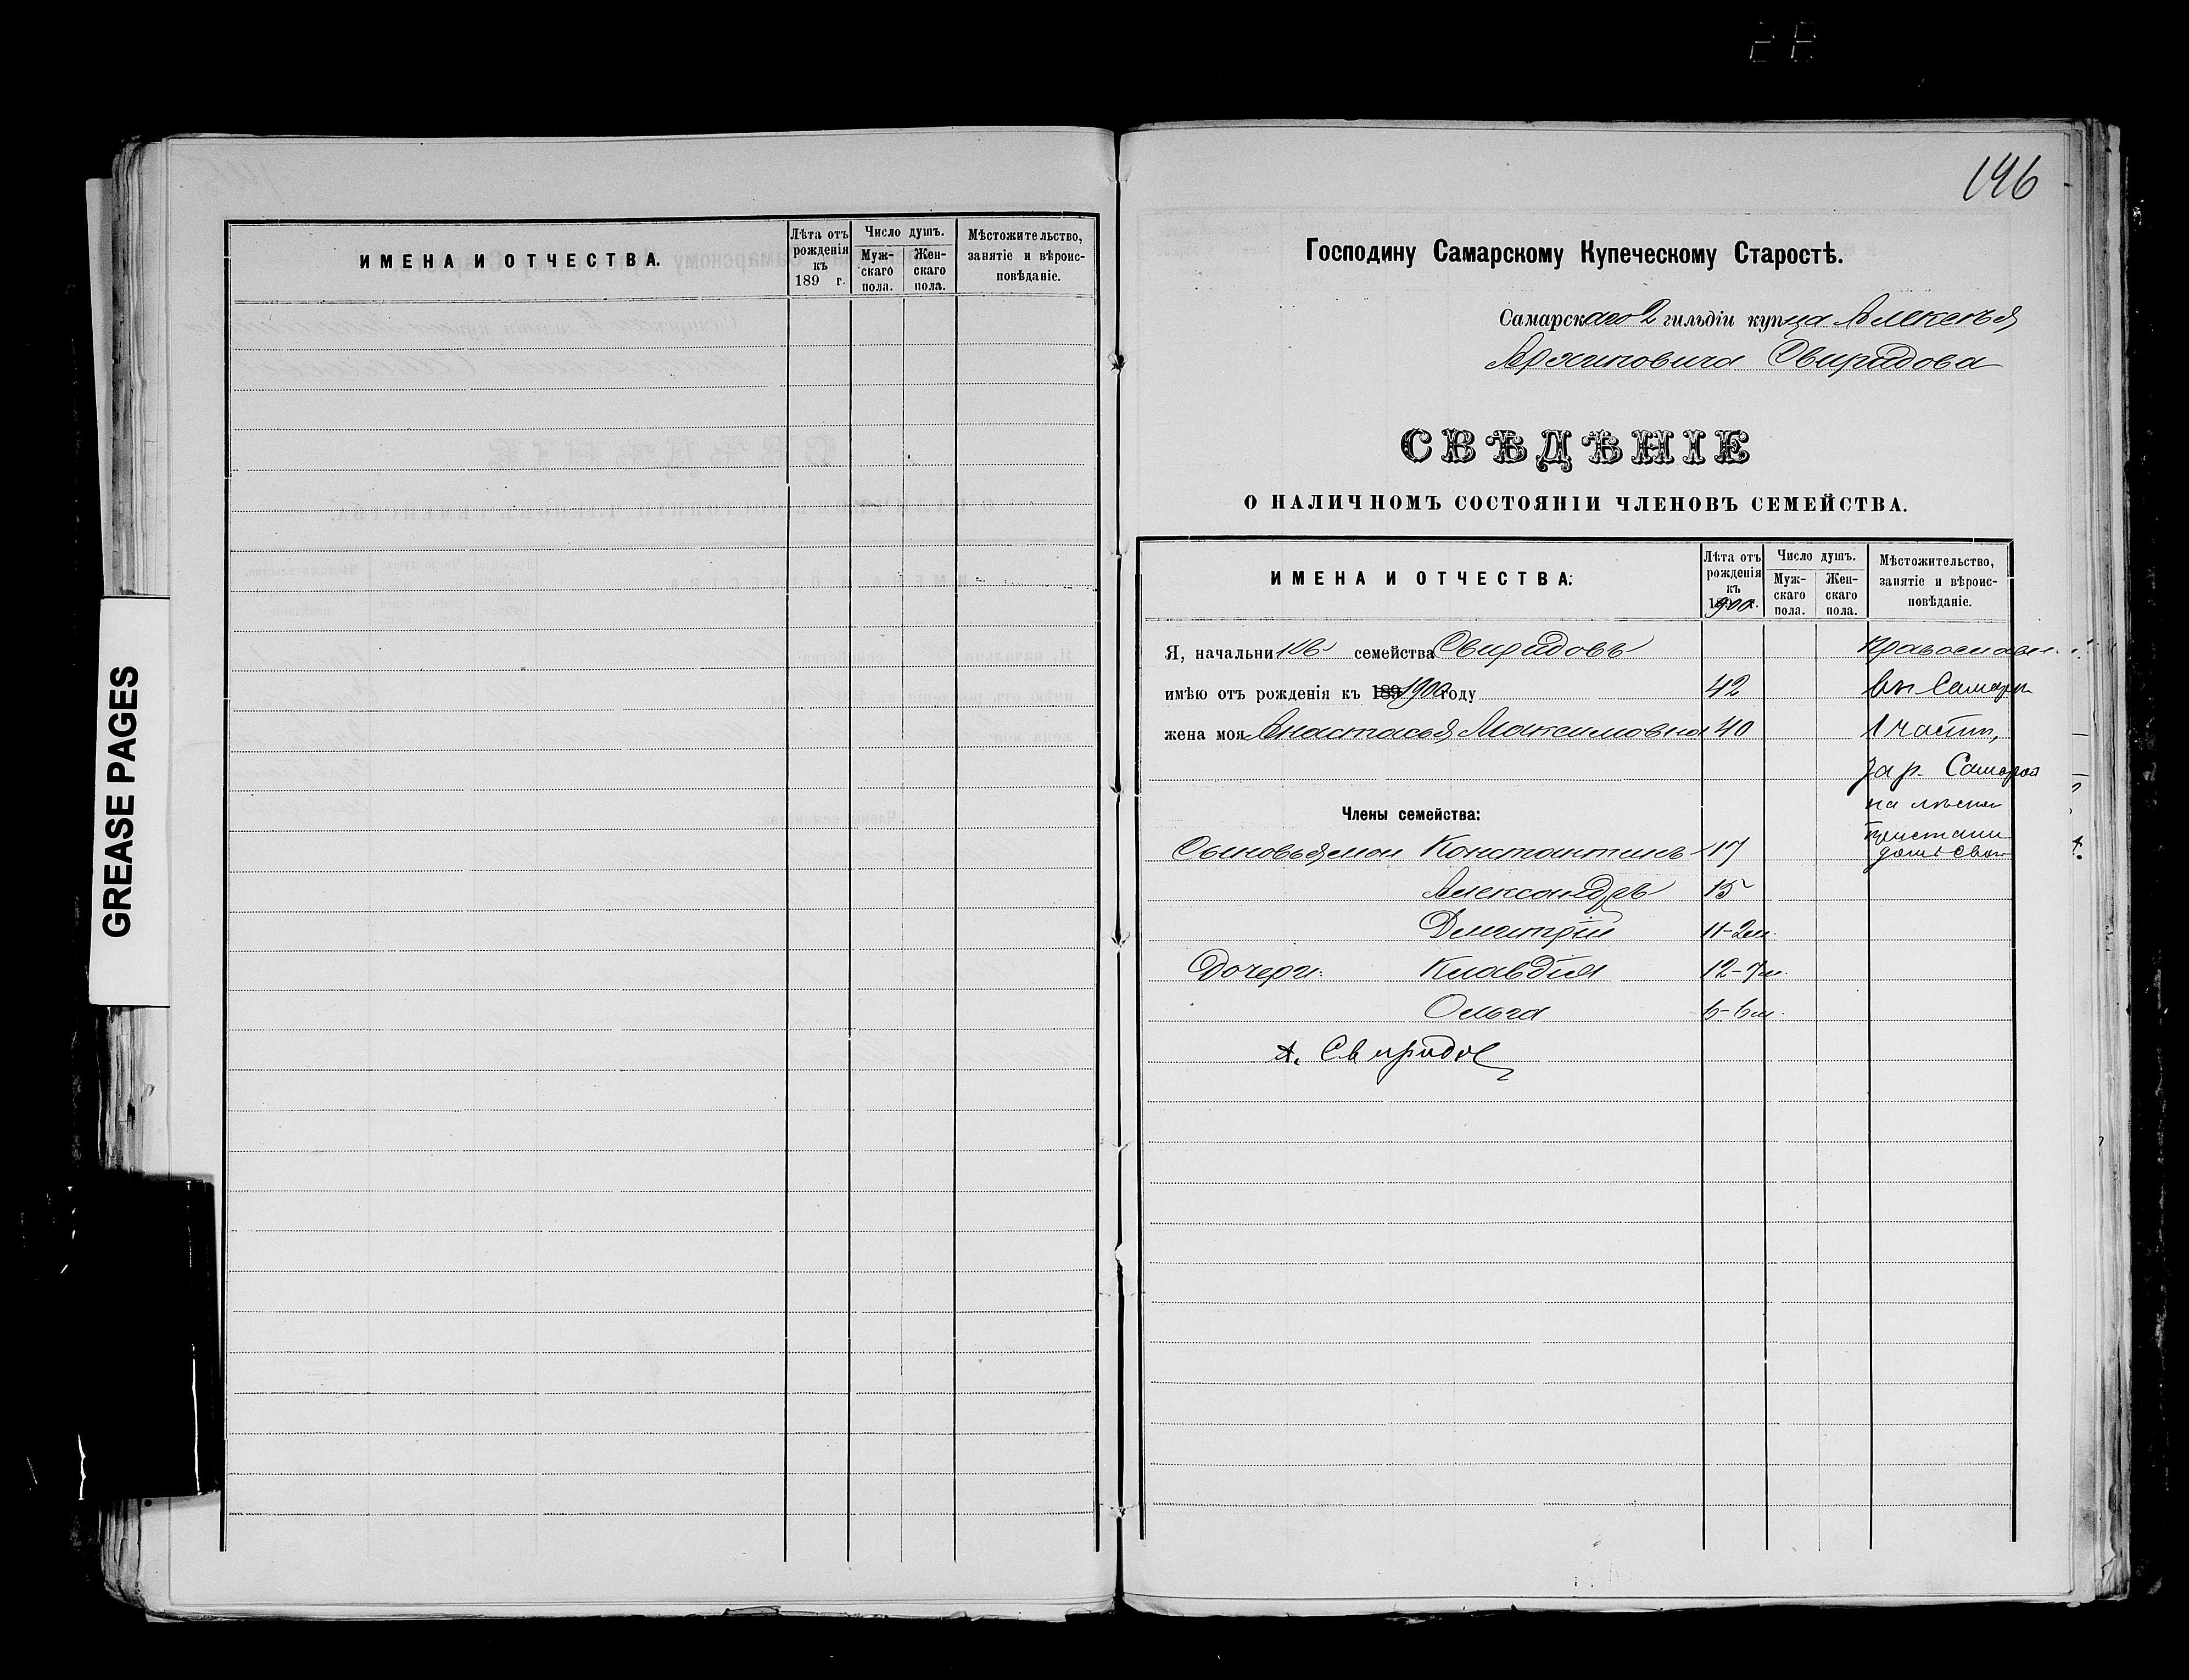 GREASE PAGES
ИМЕНА И ОТЧЕСТВА.
Лѣта отъ рожденія къ 189 г.
Число душъ.
Мужскаго пола.
Женскаго пола.
Мѣстожительство, занятіе и вѣроисповѣданіе.
146
Господину Самарскому Купеческому Старостѣ.
Самарскаго 2 гильдіи купца Алексѣя
Архиповича Свиридова
СВѢДѢНІЕ
О НАЛИЧНОМЪ СОСТОЯНІИ ЧЛЕНОВЪ СЕМЕЙСТВА.
ИМЕНА И ОТЧЕСТВА.
Лѣта отъ рожденія къ 1900 г.
Число душъ.
Мужскаго пола.
Женскаго пола.
Мѣстожительство, занятіе и вѣроисповѣданіе.
Я, начальникъ семейства Свиридовъ Православн.
имѣю отъ рожденія къ 189 1900 году 42 въ Самарѣ
жена моя Анастасья Максимовна 40 1 части,
за р. Самарой
на лѣсной
Члены семейства:
пристани
Сыновья мои Константинъ 17 домъ свой
Александръ 15
Дмитрій 11-2м.
Дочери: Клавдія 12-7м.
Ольга 6-6м.
А. Свиридов